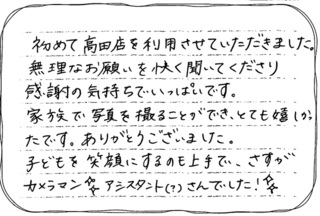 初めて高田店を利用させていただきました。
無理なお願いを快く聞いてくださり
感謝の気持ちでいっぱいです。
家族で写真を撮ることができ、とても嬉しかっ
たです。ありがとうございました。
子どもを笑顔にするのも上手で、さすが
カメラマン☆アシスタント(?)さんでした!☆